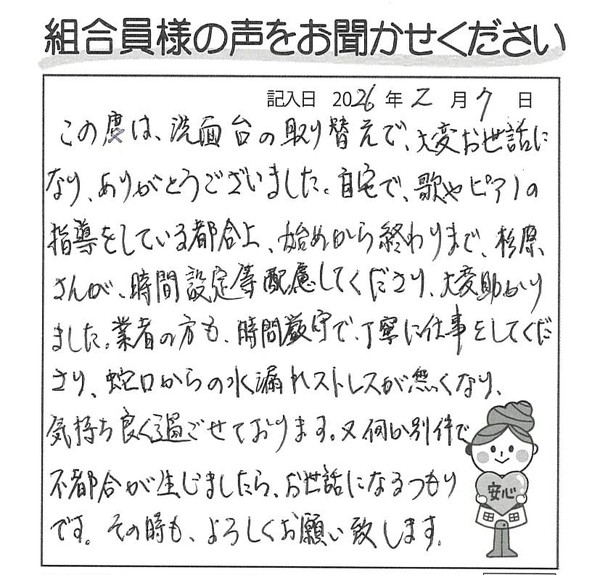 組合員様の声をお聞かせください
記入日 2026 年 2 月 7 日
この度は、洗面台の取り替えで、大変お世話に
なり、ありがとうございました。自宅で、歌やピアノの
指導をしている都合上、始めから終わりまで、杉原
さんが、時間設定等配慮してくださり、大変助かり
ました。業者の方も、時間厳守で、丁寧に仕事をしてくだ
さり、蛇口からの水漏れストレスが無くなり、
気持ち良く過ごせております。又何か別件で
不都合が生じましたら、お世話になるつもり
です。その時も、よろしくお願い致します。
安心